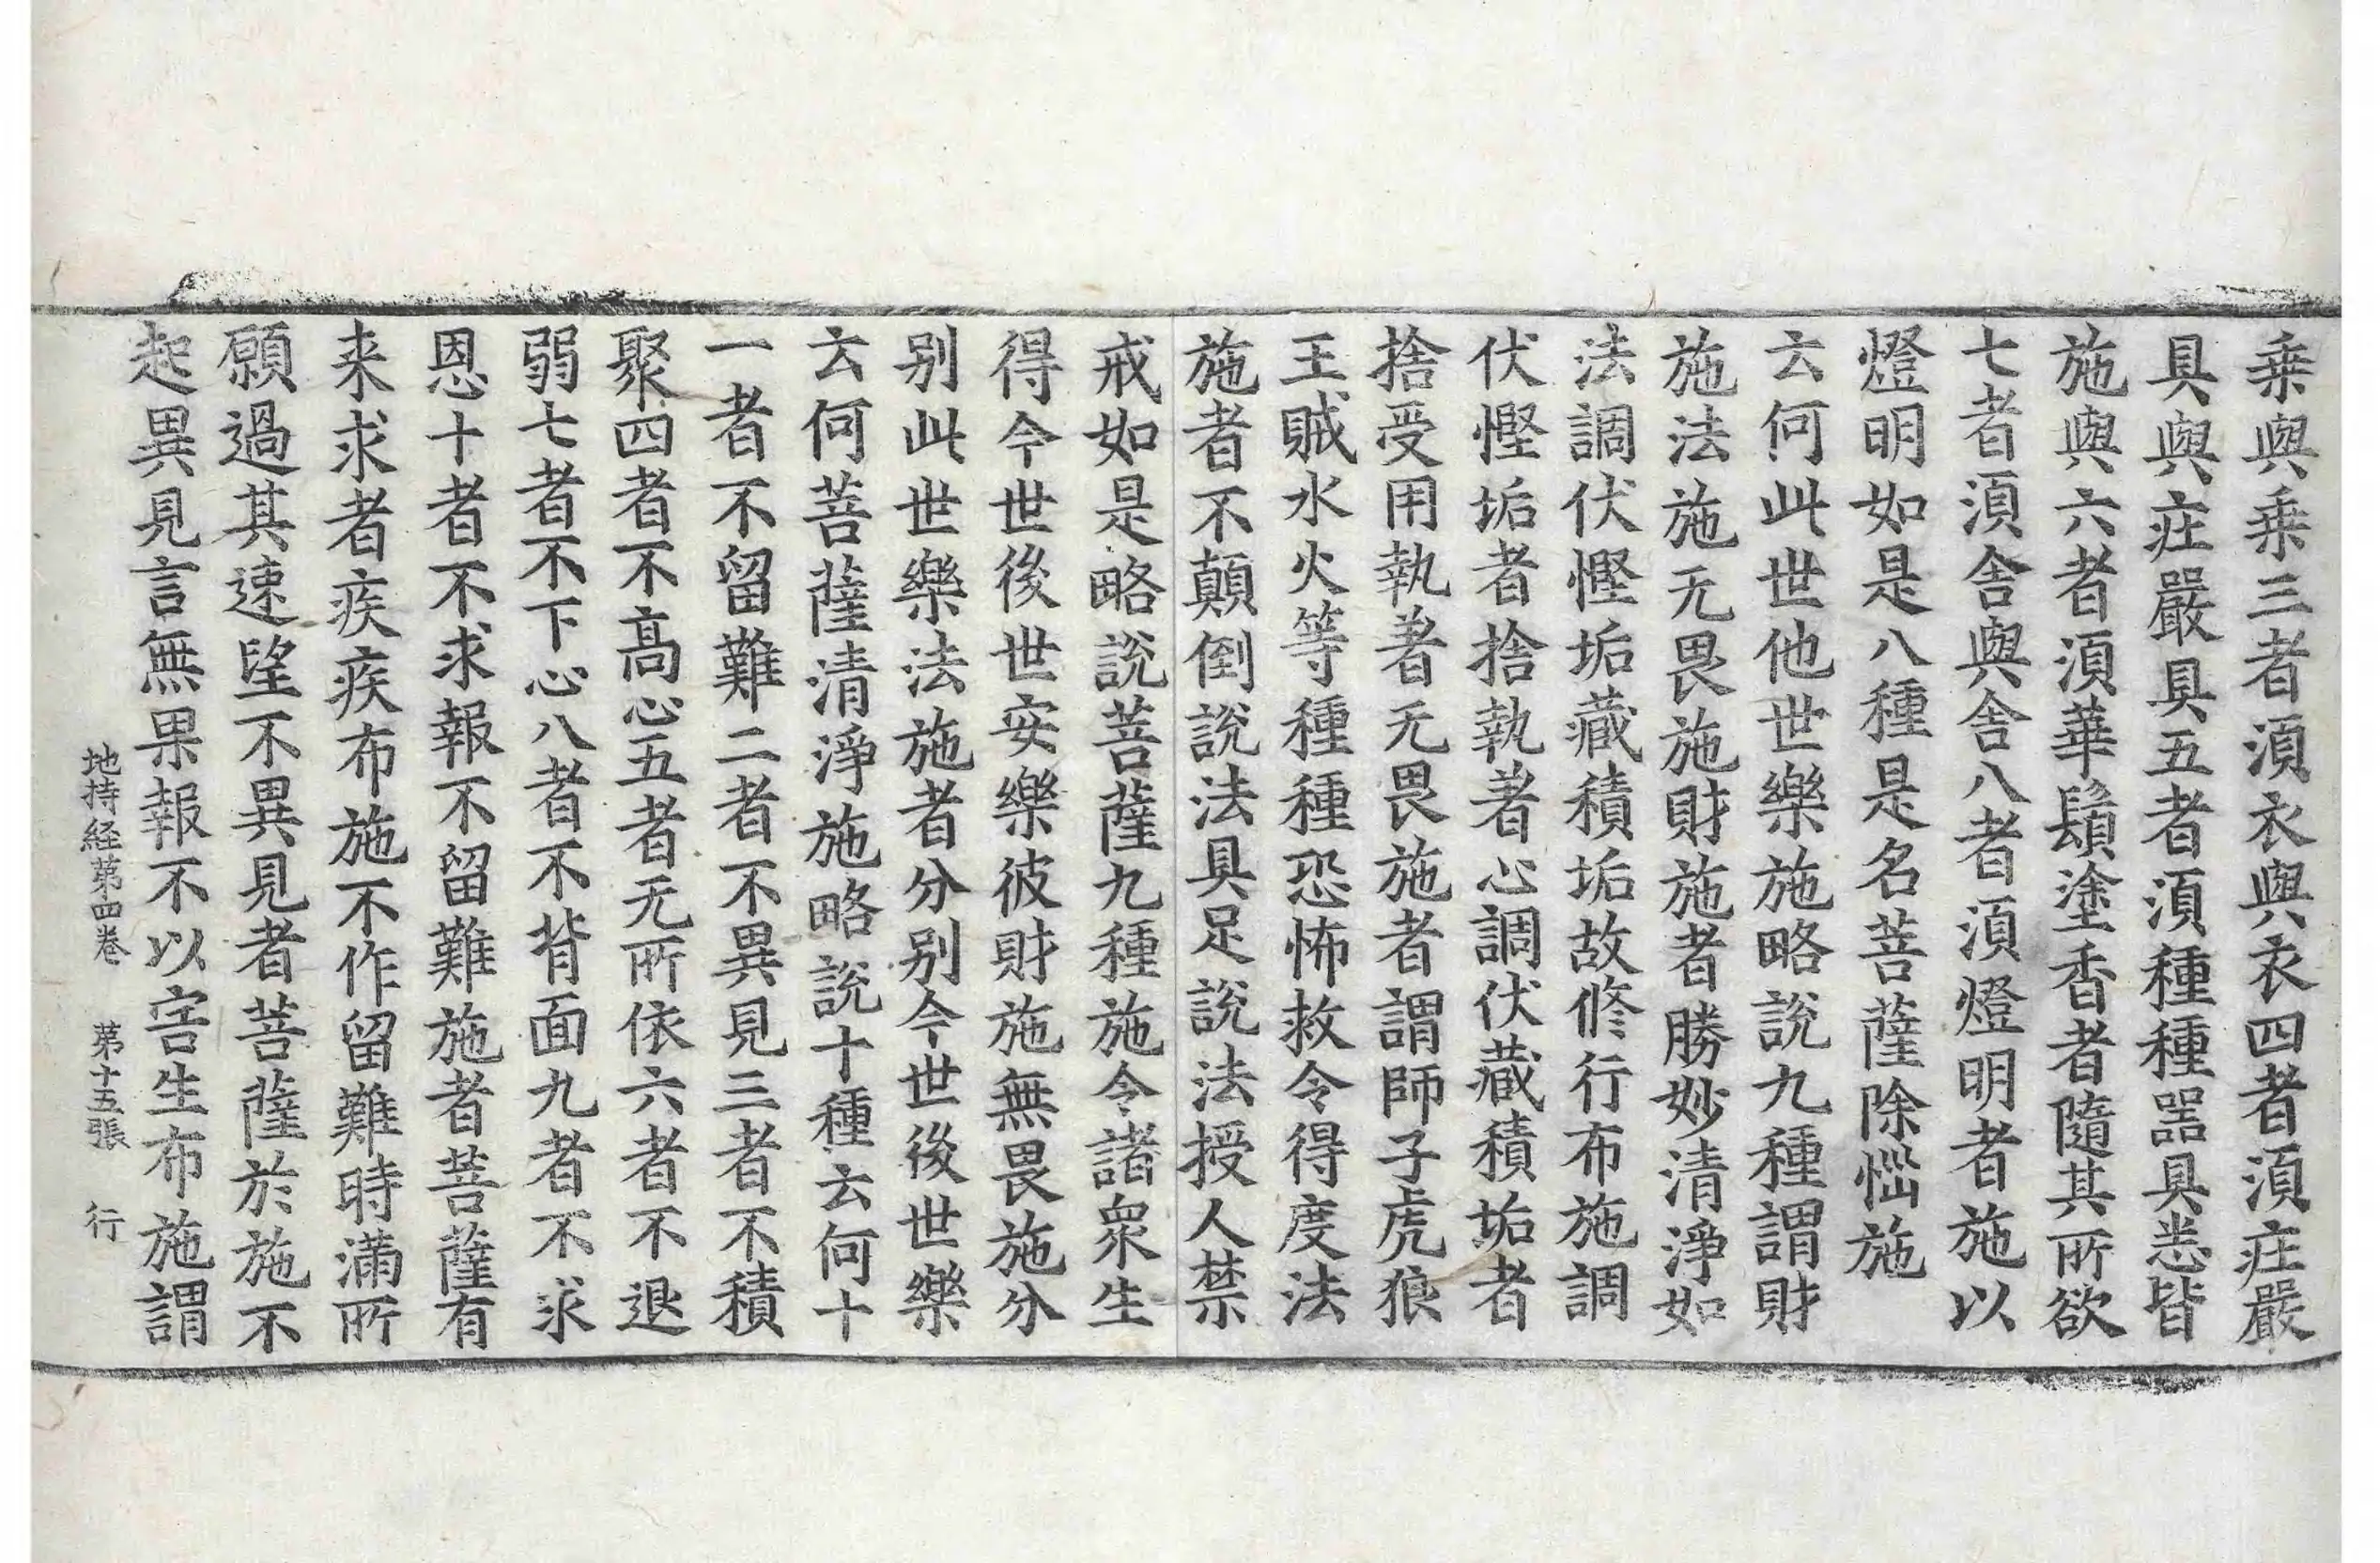 乗與乗三者湏衣與衣四者湏庄嚴
具與庄嚴具五者湏種種噐具悉皆
施與六者湏華鬘塗香者隨其所欲
七者湏舎與舎八者湏燈明者施以
燈明如是八種是名菩薩除惱施
云何此世他世樂施略說九種謂財
施法施无畏施財施者勝妙清淨如
法調伏慳垢藏積垢故修行布施調
伏慳垢者捨執著心調伏藏積垢者
捨受用執著无畏施者謂師子虎狼
王賊水火等種種恐怖救令得度法
施者不顛倒說法具足說法授人禁
戒如是略說菩薩九種施令諸衆生
得今世後世安樂彼財施無畏施分
别此世樂法施者分别今世後世樂
云何菩薩清淨施略說十種云何十
一者不留難二者不異見三者不積
聚四者不高心五者无所依六者不退
弱七者不下心八者不背面九者不求
恩十者不求報不留難施者菩薩有
来求者疾疾布施不作留難時滿所
願過其速望不異見者菩薩於施不
起異見言無果報不以害生布施謂
地持経苐四卷　苐十五張　行